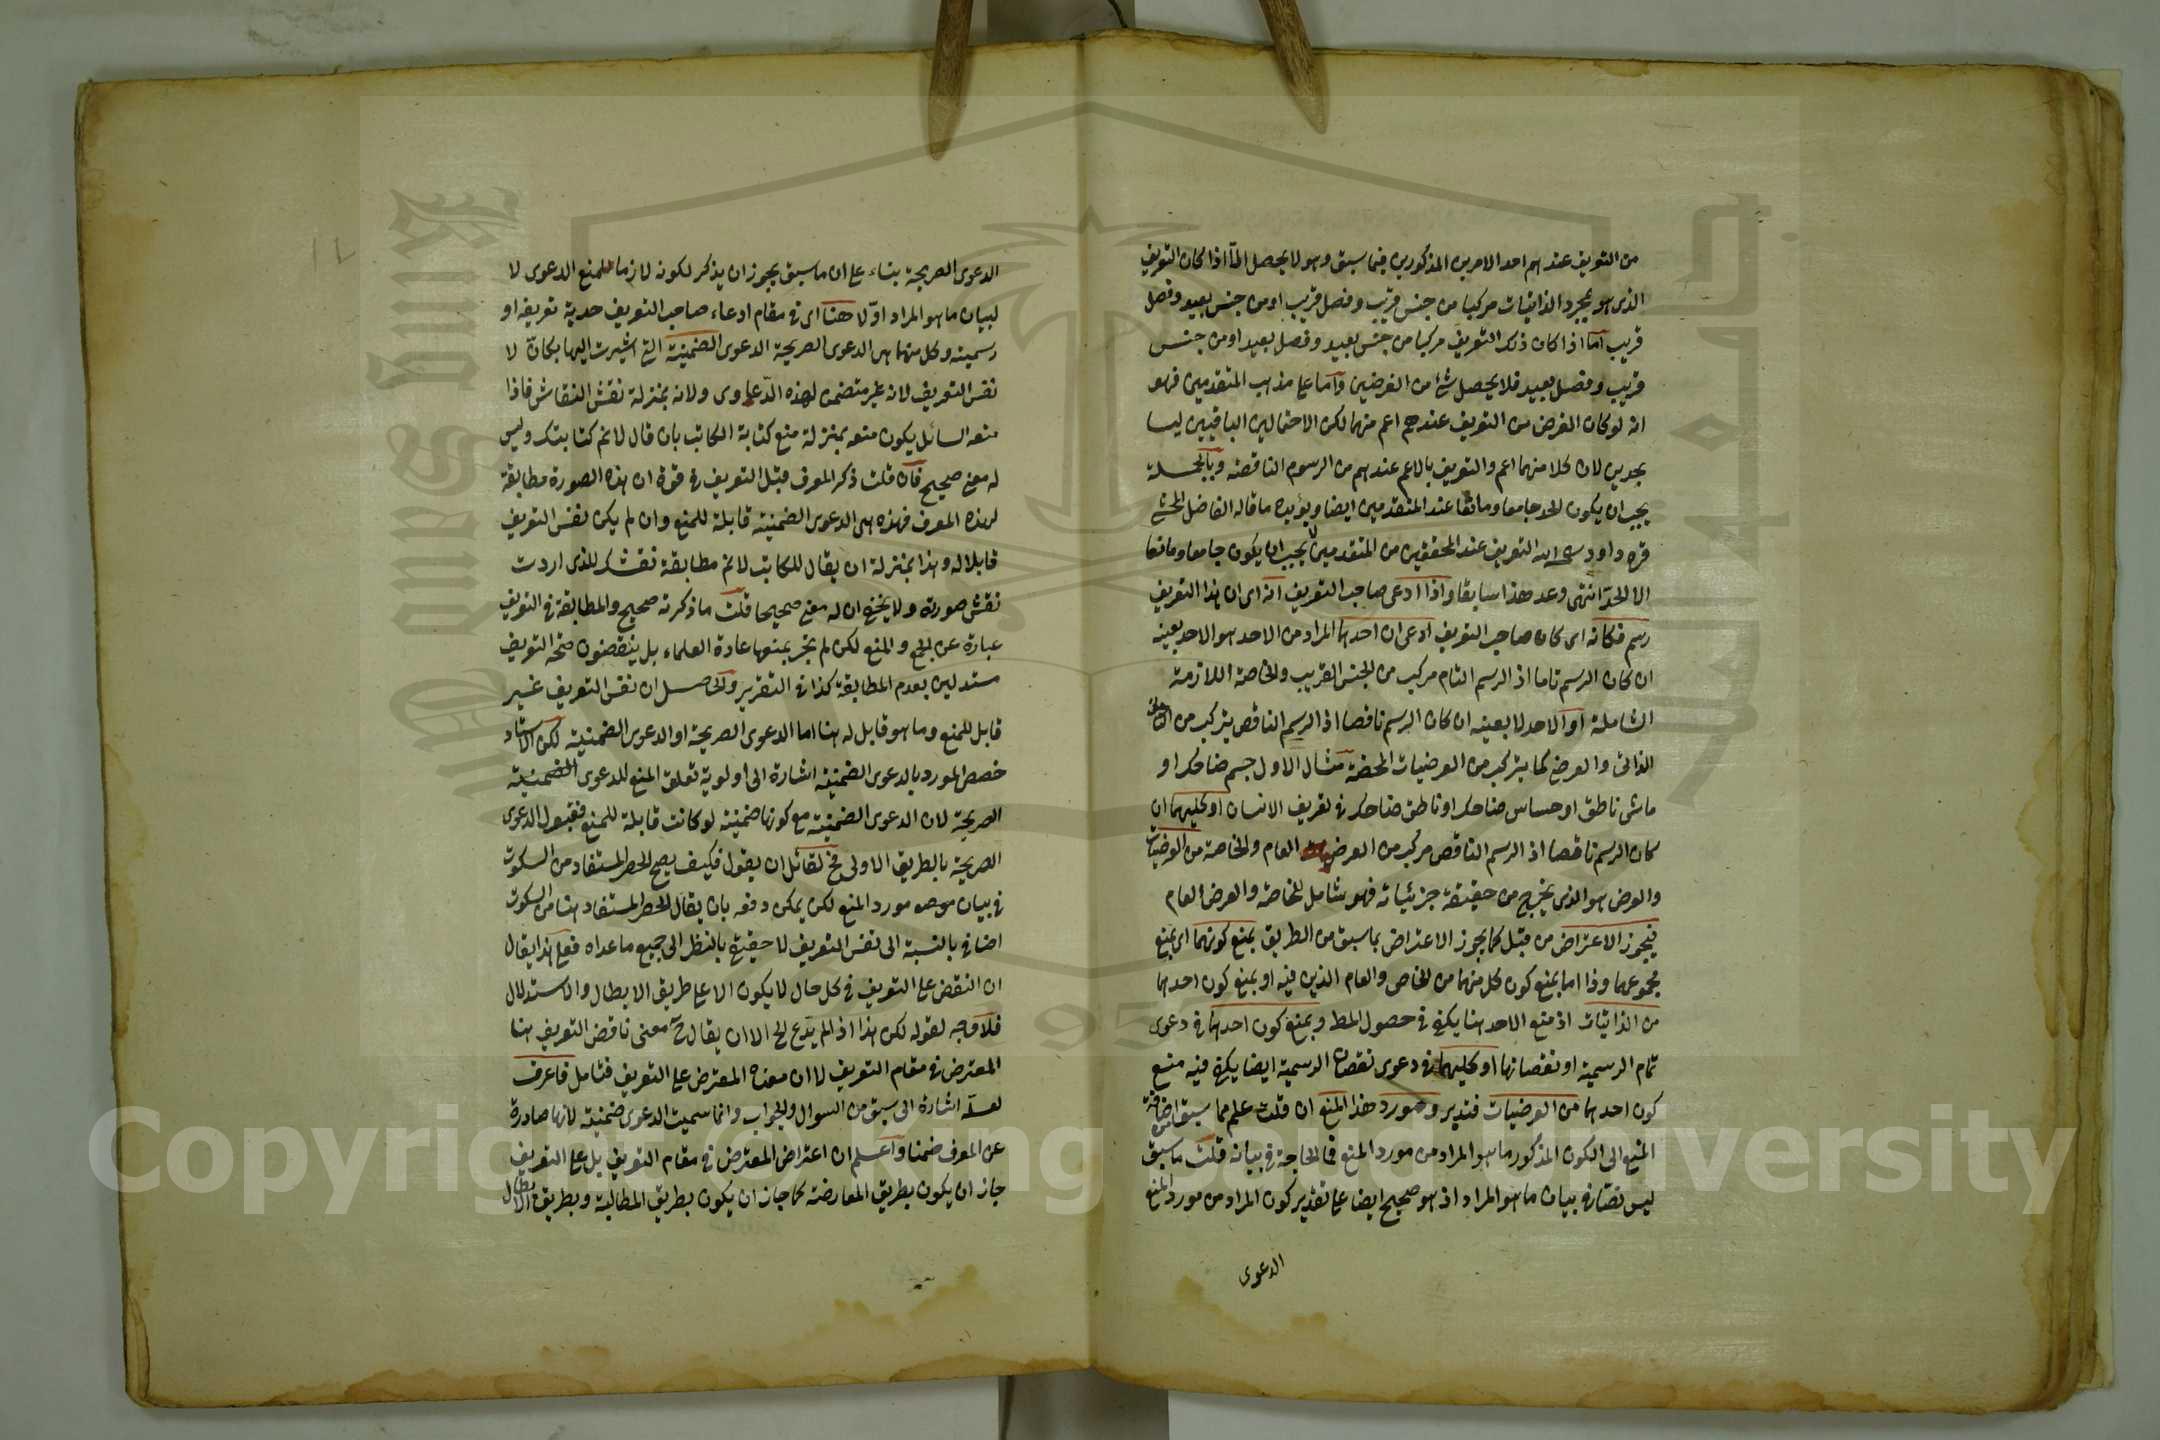 من التعريف عندهم احد الامرين المذكورين فيما سبق وهو لا يحصل الا اذا كان التعريف
الذى هو بمجرد الذاتيات مركبا من جنس قريب وفصل قريب او من جنس بعيد وفصل
قريب اما اذا كان ذلك التعريف مركبا من جنس بعيد وفصل بعيد او من جنس
قريب وفصل بعيد فلا يحصل شئ من الغرضين واما على مذهب المتقدمين فهو
انه لو كان الغرض من التعريف عندهم اعم منهما لكن الاحتمالين الباقيين ليسا
بحدين لان كلا منهما اعم والتعريف بالاعم عندهم من الرسوم الناقصة وبالجملة
يجب ان يكون الحد جامعا ومانعا عند المتقدمين ايضا ويؤيده ما قاله الفاضل المحشى
قره داود ان التعريف عند المحققين من المتقدمين لا يجب ان يكون جامعا ومانعا
الا الحد انتهى وعد هذا سابقا واذا ادعى صاحب التعريف انه اى ان هذا التعريف
رسم فكانه اى كان صاحب التعريف ادعى ان احدهما المراد من الاحد هو الاحد بعينه
ان كان الرسم تاما اذ الرسم التام مركب من الجنس القريب والخاصة اللازمة
الشاملة او الاحد لا بعينه ان كان الرسم ناقصا اذ الرسم الناقص يتركب من
الذاتى والعرضى كما يتركب من العرضيات المحضة مثال الاول جسم ضاحك او
ماشى ناطق او حساس ضاحك او ناطق ضاحك فى تعريف الانسان او كليهما ان
كان الرسم ناقصا اذ الرسم الناقص مركب من العرض العام والخاصة من العرضيات
والعرض هو الذى يخرج من حقيقة جزئياته فهو شامل للخاصة والعرض العام
فيجوز الاعتراض من قبل كما يجوز الاعتراض بما سبق من الطريق بمنع كونهما اى بمنع
مجموعهما وذا اما بمنع كون كل منهما من الخاص والعام الذين فيه او بمنع كون احدهما
من الذاتيات اذ منع الاحد هنا يكفى فى حصول المط وبمنع كون احدهما فى دعوى
تمام الرسمية او نقصانها او كليهما فى دعوى نقصان الرسمية ايضا يكفى فيه منع
كون احدهما من العرضيات فتدبر ومورد هذا المنع ان قلت علم مما سبق اضافة
المنع الى الكون المذكور ما هو المراد من مورد المنع فما الحاجة فى بيانه قلت ما سبق
ليس نصا فى بيان ما هو المراد اذ هو صحيح ايضا على تقدير كون المراد من مورد المنع
الدعوى
الدعوى الصريحة بناء على ان ما سبق يجوز ان يذكر لكونه لازما لمنع الدعوى لا
لبيان ما هو المراد اولا هنا اى فى مقام ادعاء صاحب التعريف حدية تعريفه او
رسميته وكل منهما هى الدعوى الصريحة الدعوى الضمنية التى اشيرت اليها بكان لا
نفس التعريف لانه غير متضمن لهذه الدعاوى ولانه بمنزلة نقش النقاش فاذا
منعه السائل يكون منعه بمنزلة منع كتابة الكاتب بان قال لا نم كتابتك وليس
له معنى صحيح فان قلت ذكر المعرف قبل التعريف فى قوة ان هذه الصورة مطابقة
لهذه المعرف فهذه هى الدعوى الضمنية قابلة للمنع وان لم يكن نفس التعريف
قابلا له وهذا بمنزلة ان يقال للكاتب لا نم مطابقة نقشك للذى اردت
نقش صورته ولا يخفى ان له معنى صحيحا قلت ما ذكرته صحيح والمطابقة فى التعريف
عبارة عن الجمع والمنع لكن لم تجر بمنعها عادة العلماء بل ينقضون صحة التعريف
مستدلين بعدم المطابقة كذا فى التقرير والحاصل ان نفس التعريف غير
قابل للمنع وما هو قابل له هنا اما الدعوى الصريحة او الدعوى الضمنية لكن الاستاد
خصص المورد بالدعوى الضمنية اشارة الى اولوية تعلق المنع للدعوى الضمنية
الصريحة لان الدعوى الضمنية مع كونها ضمنية لو كانت قابلة للمنع فقبول الدعوى
الصريحة بالطريق الاولى فح لقائل ان يقول فكيف يصح الحصر المستفاد من السكوت
فى بيان مورد المنع لكن يمكن دفعه بان يقال الحصر المستفاد هنا من السكوت
اضافى بالنسبة الى نفس التعريف لا حقيقى بالنظر الى جميع ما عداه فعلى هذا يقال
ان النقض على التعريف فى كل حال لا يكون الا على طريق الابطال والاستدلال
فلا وجه لقوله لكن هذا اذا لم يدع الخ الا ان يقال ح معنى ناقض التعريف هنا
المعترض فى مقام التعريف لا ان معناه المعترض على التعريف فتامل فاعرف
لعله اشارة الى سبق من السوال والجواب وانما سميت الدعوى ضمنية لانها صادرة
عن المعرف ضمنا واعلم ان اعتراض المعترض فى مقام التعريف بل على التعريف
جاز ان يكون بطريق المعارضة كما جاز ان يكون بطريق المطالبة وبطريق الابطال
Copyright © King Saud University